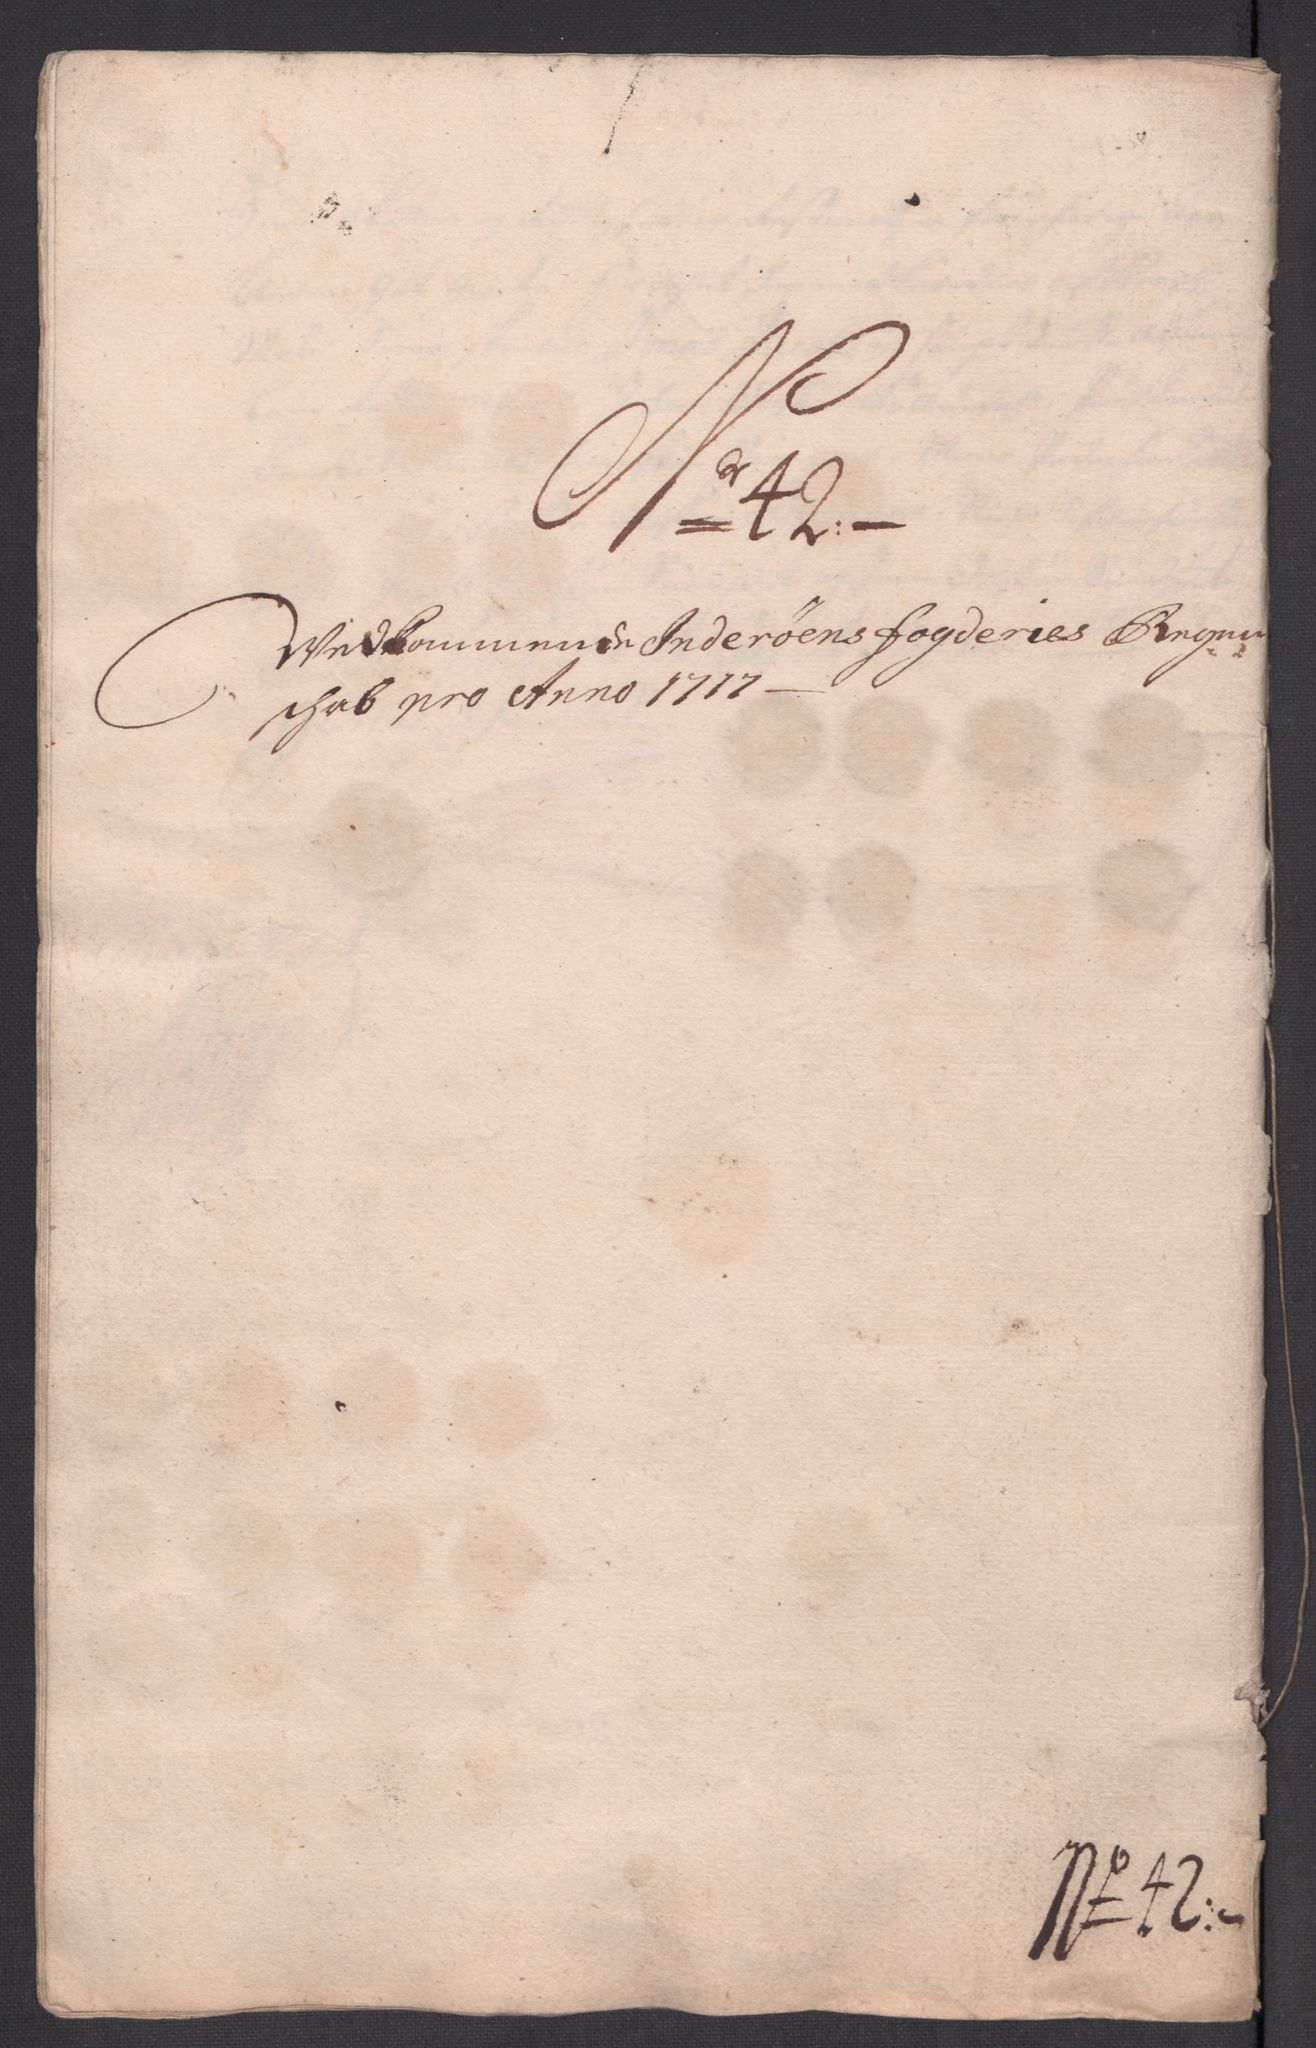 Nr 42:—
Vedkommende Inderöens fogderies Regn-
schab pro Anno 1717 —
No 42:-